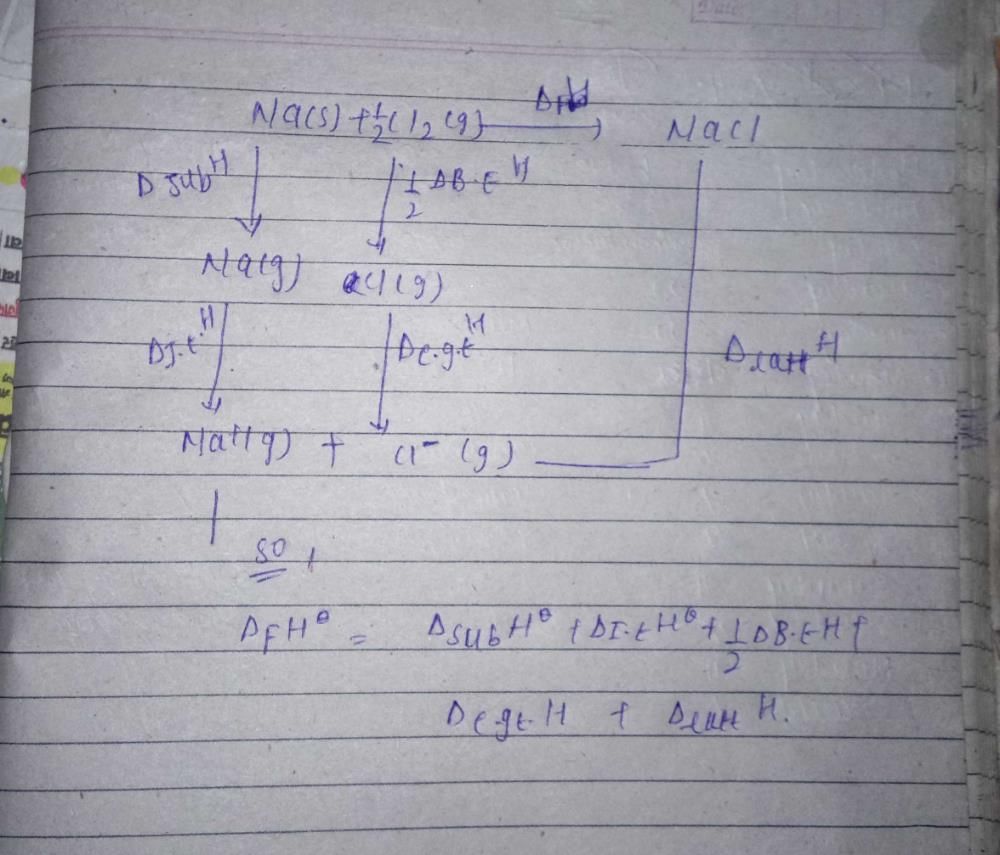 Date:
ΔfH
Na(s) + 1/2 Cl2 (g) → NaCl
ΔsubH 1/2 ΔB.E H
Na(g) Cl(g)
ΔI.E H Δe.g.E H ΔlattH
Na+(g) + Cl- (g)
SO,
ΔFHθ = ΔsubHθ + ΔI.EHθ + 1/2 ΔB.EH +
Δe.gE H + ΔlattH.